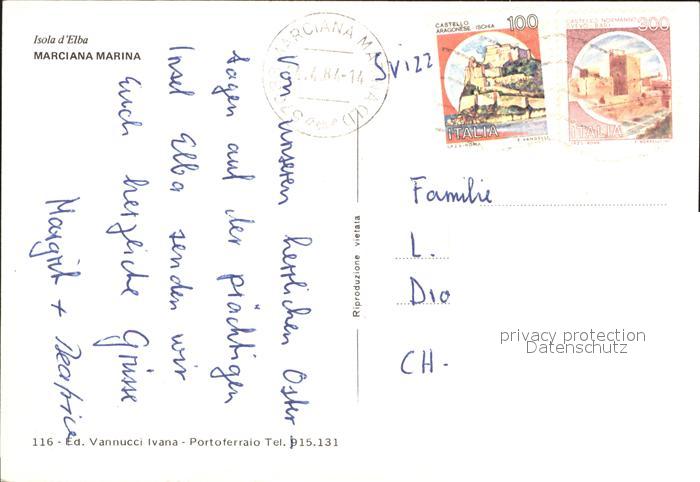 Isola d'Elba
MARCIANA MARINA
Von unseren herrlichen Oster-
tagen auf der prächtigen
Insel Elba senden wir
Euch herzliche Grüsse
Margrit + Beatrice
116 - Ed. Vannucci Ivana - Portoferraio Tel. 915.131
Riproduzione vietata
MARCIANA MARINA (LI)
.4.84-14
Svizz
CASTELLO
ARAGONESE - ISCHIA
100
ITALIA
I.P.Z.S. - ROMA
CASTELLO NORMANNO
SVEVO - BARI
300
ITALIA
I.P.Z.S. - ROMA
Familie
L.
Dio
CH-
privacy protection
Datenschutz